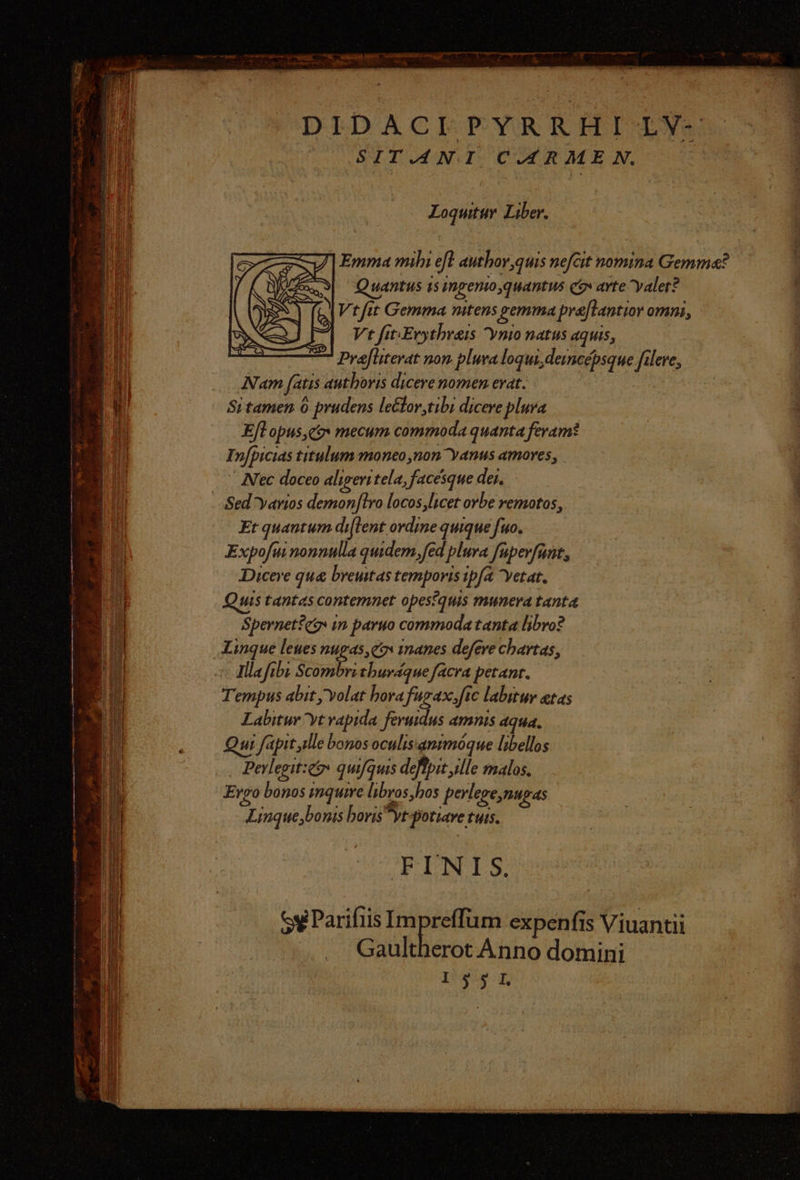 DIDACI PYRRHI LV-
SITANI CARMEN.
Loquitur Liber.
GEmma mihi eſt author,quis neſcit nomina Gemmæ?
Quantus is ingenio,quantus & arte valet?
Vt ſit Gemma nitens gemma præſtantior omni,
Vt ſit Erythræis vnio natus aquis,
Præſtiterat non plura loqui,deincépsque ſilere,
Nam ſatis authoris dicere nomen erat.
Si tamen ô prudens lector,tibi dicere plura
Eſt opus,& mecum commoda quanta feram?
Inſpicias titulum moneo,non vanus amores,
Nec doceo aligeri tela,facésque dei.
Sed varios demonſtro locos,licet orbe remotos,
Et quantum diſtent ordine quique ſuo.
Expoſui nonnulla quidem,ſed plura ſuperſunt,
Dicere quæ breuitas temporis ipſa vetat.
Quis tantas contemnet opes?quis munera tanta
Spernet?& in paruo commoda tanta libro?
Linque leues nugas,& inanes deſere chartas,
Illa ſibi Scombri thuráque ſacra petant.
Tempus abit,volat hora fugax,ſic labitur ætas
Labitur vt rapida feruidus amnis aqua.
Qui ſapit,ille bonos oculis animóque libellos
Perlegit:& quiſquis deſipit,ille malos.
Ergo bonos inquire libros,hos perlege,nugas
Linque,bonis horis vt potiare tuis.
FINIS.
Pariſiis Impreſſum expenſis Viuantii
Gaultherot Anno domini
1551.